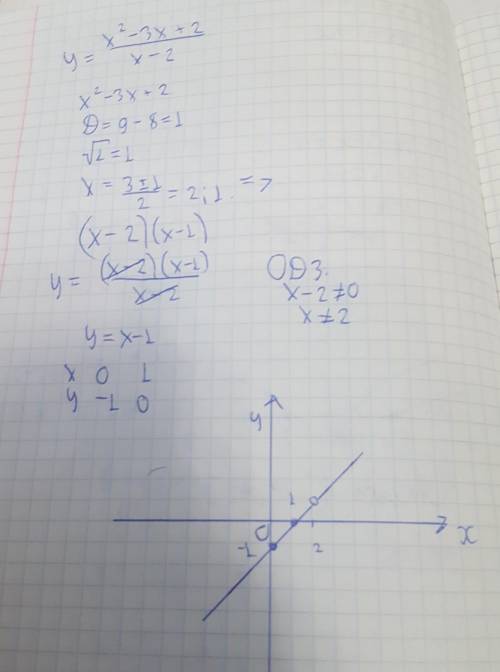 y = (x² - 3x + 2)/(x - 2)
x² - 3x + 2
D = 9 - 8 = 1
√1 = 1
x = (3 ± 1)/2 = 2; 1. =>
(x - 2)(x - 1)
y = (x - 2)(x - 1)/(x - 2)
ОДЗ.
x - 2 ≠ 0
x ≠ 2
y = x - 1
x 0 1
y -1 0
y
1
0
-1
2
x